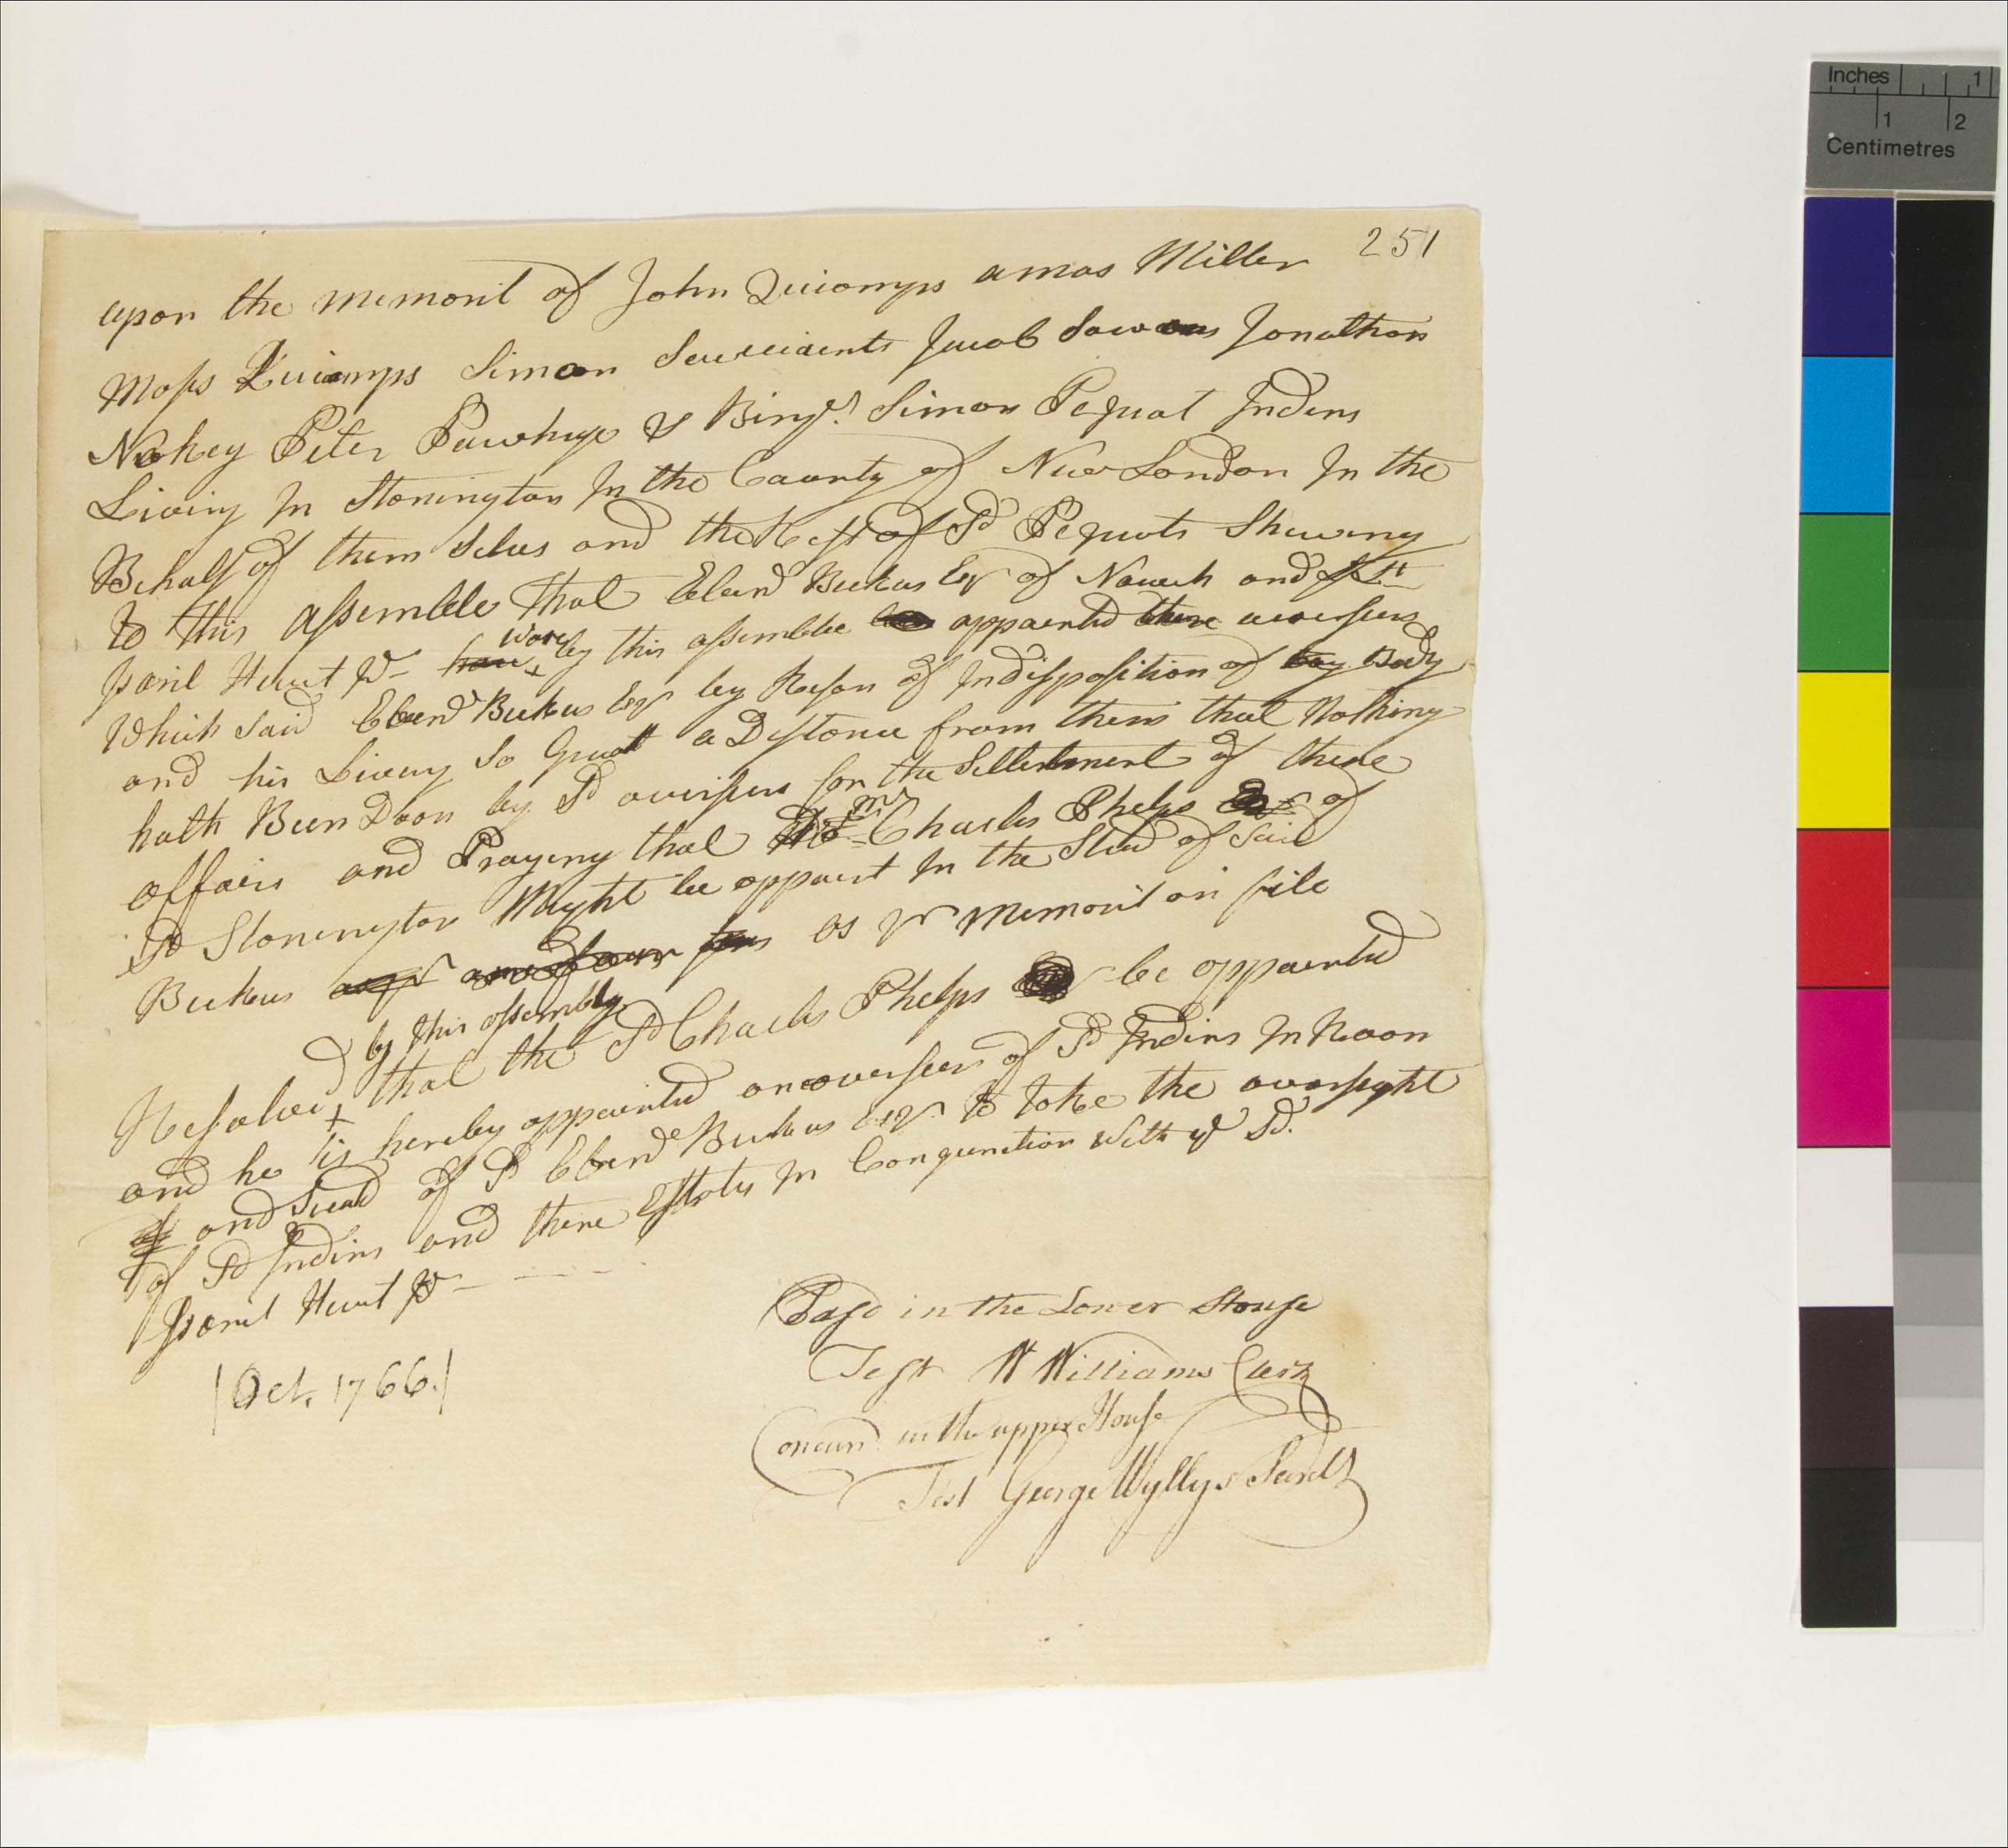 251
upon the memoril of John Quiomps amos Miller
Moses Quiamps Simon Jacob Sowous Jonathan
Nokey Peter Pawhege & Binjn. Simon Pequat Indins
Living In Stonington In the County of New London In the
Behalf of them Selves and the Rest of Sd Pequots Shewing
to this assemble that Ebenr Backus Esqr of Norwich and
Isaril Hewit Jr were by this assemblee appointed there oversears
Which said Ebenr Backus Esqr by Reson of Indisposition of Body
and his Liveing So Great a Distance from them that Nothing
hath Been Doon by Sd oversers for the Settlement of there
affairs and Praying that mr Charles Phelps of
Sd Stonington Might be appoint In the Stead of Said
Backus as pr memoril on file
by this assembly
Resolved that the Sd Charles Phelps be appointed
and he is hereby appointed an overseer of Sd Indins In Room
and Stead of Sd Ebenr Backus Esqr to take the oversight
of Sd Indins and there Estates In Conjunction With ye Sd.
Isaril Hewit Jr
Pasd in the Lower House
Test W Williams Clerk
[Oct. 1766.]
Concurd in the upper House
Test George Wyllys Secrety